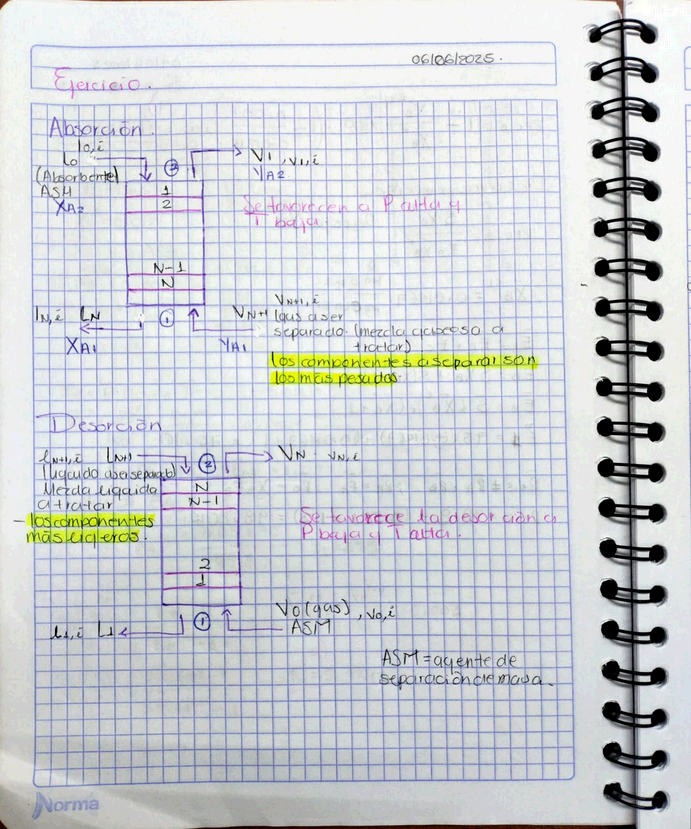 06/06/2025.
Ejercicio.
Absorción
l0,i
L0
(Absorbente)
ASM
XA2
②
V1, v1,i
YA2
1
2
Se favorecen a P alta y
T baja.
N-1
N
lN,i LN
XA1
①
VN+1
YA1
vN+1,i
(gas a ser
separado. (mezcla gaseosa a
tratar)
los componentes a separar son
los más pesados.
Desorción
lN+1,i LN+1
(Líquido a ser separado)
Mezcla líquida
a tratar
- los componentes
más ligeros.
②
VN vN,i
N
N-1
Se favorece la desorción a
P baja y T alta.
2
1
l1,i L1
①
V0 (gas), v0,i
ASM
ASM = agente de
separación de masa.
Norma